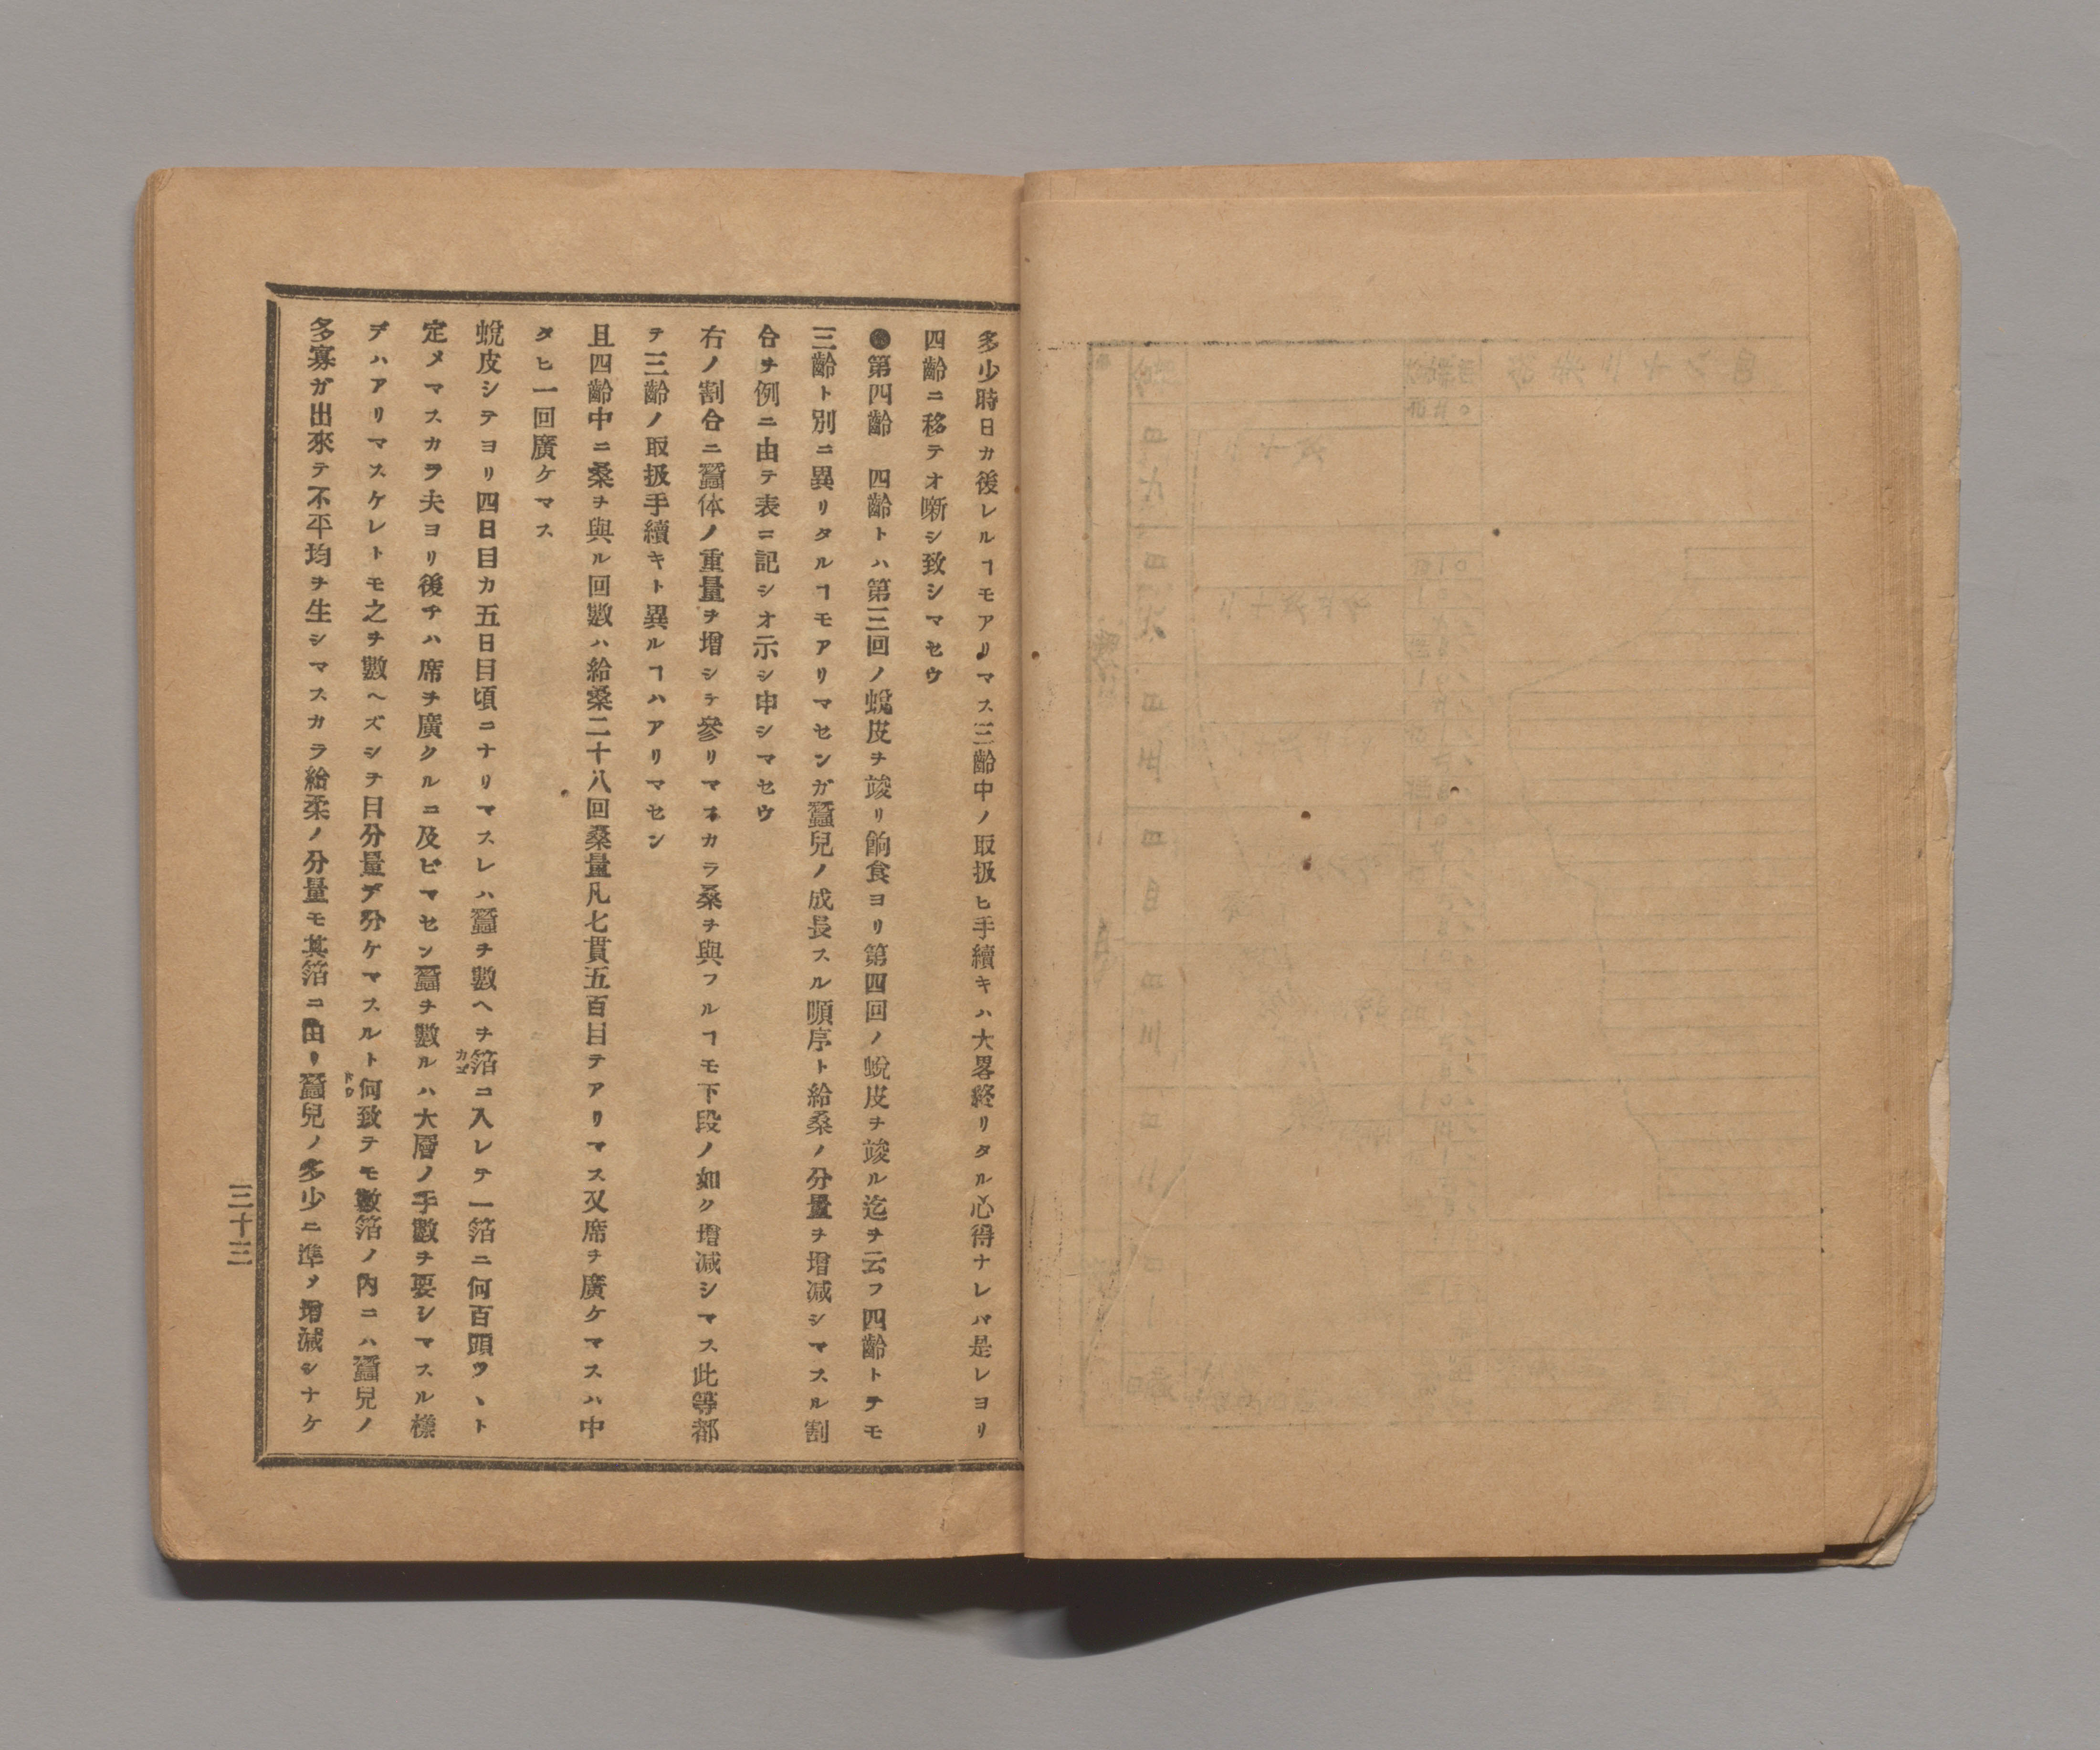 多少時日カ後レルヿモアリマス三齡中ノ取扱ヒ手續キハ大畧終リタル心得ナレバ是レヨリ
四齡ニ移テオ噺シ致シマセウ
●第四齡　四齡トハ第三回ノ蛻皮ヲ竣リ餉食ヨリ第四回ノ蛻皮ヲ竣ル迄ヲ云フ四齡トテモ
三齡ト別ニ異リタルヿモアリマセンガ蠶兒ノ成長スル順序ト給桑ノ分量ヲ增减シマスル割
合ヲ例ニ由テ表ニ記シオ示シ申シマセウ
右ノ割合ニ蠶体ノ重量ヲ增シテ參リマスカラ桑ヲ與フルヿモ下段ノ如ク增减シマス此等都
テ三齡ノ取扱手續キト異ルヿハアリマセン
且四齡中ニ桑ヲ與ル回數ハ給桑二十八回桑量凡七貫五百目テアリマス又席ヲ廣ケマスハ中
タヒ一回廣ケマス
蛻皮シテヨリ四日目カ五日目頃ニナリマスレハ蠶ヲ數ヘヲ箔カゴニ入レテ一箔ニ何百頭ヅヽト
定メマスカラ夫ヨリ後チハ席ヲ廣クルニ及ビマセン蠶ヲ數ルハ大層ノ手數ヲ要シマスル樣
デハアリマスケレトモ之ヲ數ヘズシヲ目分量デ分ケマスルト何ドウ致テモ數箔ノ內ニハ蠶兒ノ
多寡ガ出來テ不平均ヲ生シマスカラ給柔ノ分量モ其箔ニ由リ蠶兒ノ多少ニ準ノ增减シナケ
三十三